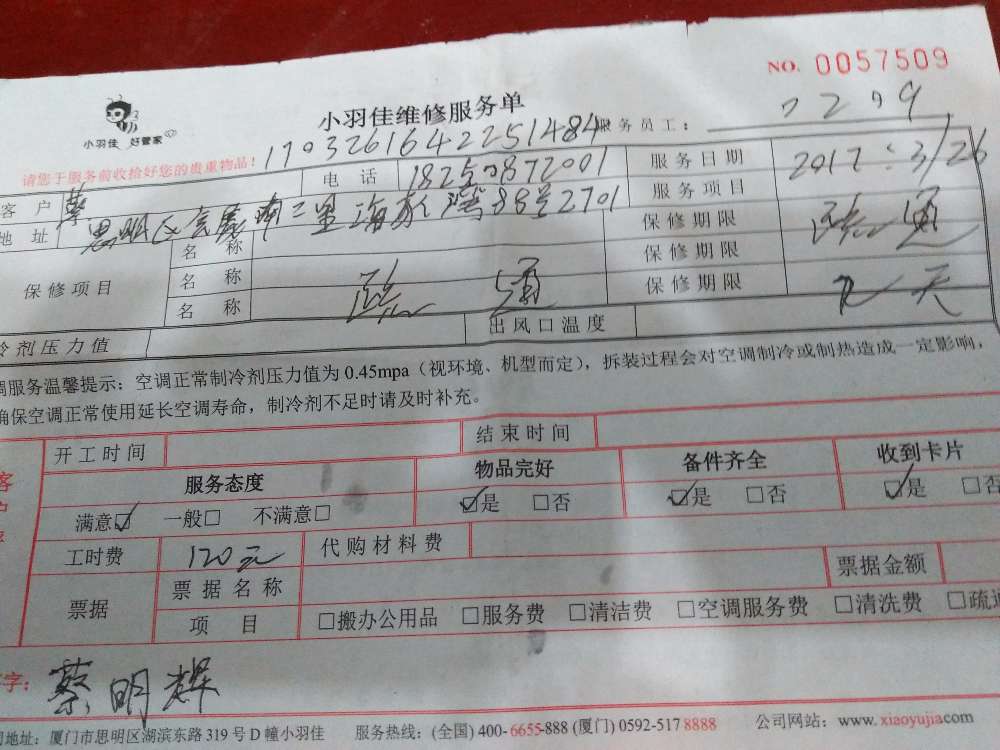 NO. 0057509
小羽佳维修服务单
小羽佳 好管家
服务员工: 0209
请您于服务前收拾好您的贵重物品! 1703261642251484
客户 蔡 电话 18250872001 服务日期 2017.3/26
地址 思明区会展南二里海欣湾88号2701 服务项目 疏通
保修项目 名称 保修期限
名称 疏通 保修期限 九天
名称 保修期限
冷剂压力值 出风口温度
调服务温馨提示:空调正常制冷剂压力值为0.45mpa(视环境、机型而定),拆装过程会对空调制冷或制热造成一定影响,
确保空调正常使用延长空调寿命,制冷剂不足时请及时补充。
开工时间 结束时间
客户 服务态度 物品完好 备件齐全 收到卡片
满意☑ 一般□ 不满意□ ☑是 □否 ☑是 □否 ☑是 □否
工时费 120元 代购材料费
票据 票据名称 票据金额
项目 □搬办公用品 □服务费 □清洁费 □空调服务费 □清洗费 □疏通
字: 蔡明辉
地址:厦门市思明区湖滨东路319号D幢小羽佳 服务热线:(全国)400-6655-888 (厦门)0592-5178888 公司网站:www.xiaoyujia.com